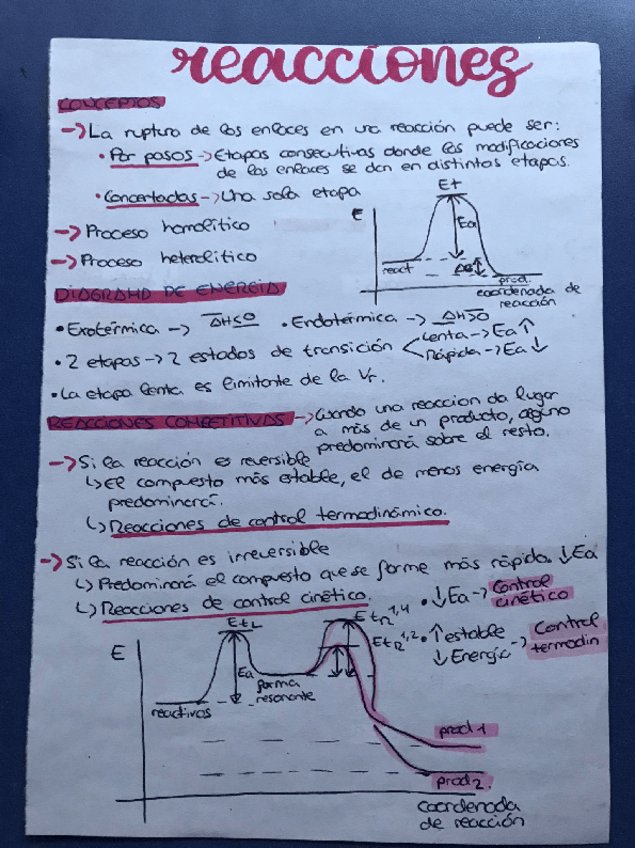 reacciones
CONCEPTOS
→ La ruptura de los enlaces en una reacción puede ser:
• Por pasos → Etapas consecutivas donde las modificaciones
de los enlaces se dan en distintas etapas.
• Concertadas → Una sola etapa
→ Proceso homolítico
→ Proceso heterolítico
E
Et
Ea
react
ΔG
prod.
coordenada de
reacción
DIAGRAMA DE ENERGÍA
• Exotérmica → ΔH≤0 • Endotérmica → ΔH>0
• 2 etapas → 2 estados de transición
Lenta → Ea↑
Rápida → Ea↓
• La etapa lenta es limitante de la Vr.
REACCIONES COMPETITIVAS → Cuando una reaccion da lugar
a más de un producto, alguno
predominará sobre el resto.
→ Si la reacción es reversible
↳ El compuesto más estable, el de menos energía
predominará.
↳ Reacciones de control termodinámico.
→ Si la reacción es irreversible
↳ Predominará el compuesto que se forme más rápido. ↓Ea
↳ Reacciones de control cinético.
• ↓Ea → Control
cinético
• ↑estable
↓Energía → Control
termodin
E
EtL
EtR1,4
EtR1,2
Ea
forma
resonante
reactivos
prod1
prod2.
coordenada
de reacción